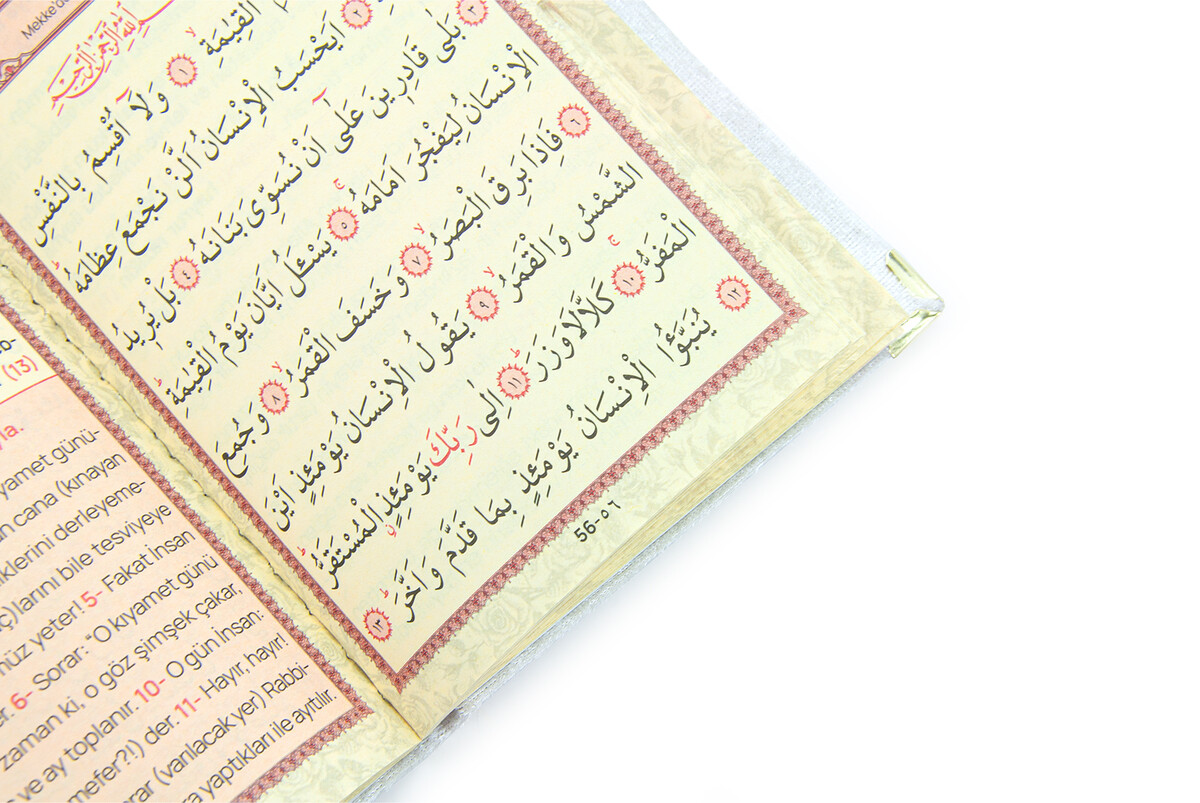 Mekke'de
الْقِيٰمَةِۙ ١ وَلَٓا اُقْسِمُ بِالنَّفْسِ
٢ اَيَحْسَبُ الْاِنْسَانُ اَلَّنْ نَجْمَعَ عِظَامَهُۜ
٣ بَلٰى قَادِر۪ينَ عَلٰٓى اَنْ نُسَوِّيَ بَنَانَهُ ٤ بَلْ يُر۪يدُ
الْاِنْسَانُ لِيَفْجُرَ اَمَامَهُۚ ٥ يَسْـَٔلُ اَيَّانَ يَوْمُ الْقِيٰمَةِۜ
٦ فَاِذَا بَرِقَ الْبَصَرُۙ ٧ وَخَسَفَ الْقَمَرُۙ ٨ وَجُمِعَ
الشَّمْسُ وَالْقَمَرُۙ ٩ يَقُولُ الْاِنْسَانُ يَوْمَئِذٍ اَيْنَ
الْمَفَرُّۚ ١٠ كَلَّا لَا وَزَرَۜ ١١ اِلٰى رَبِّكَ يَوْمَئِذٍ الْمُسْتَقَرُّۜ
١٢ يُنَبَّؤُا الْاِنْسَانُ يَوْمَئِذٍ بِمَا قَدَّمَ وَاَخَّرَۜ ١٣
56-٥٦
(13)
yla.
yamet günü-
n cana (kınayan
iklerini derleyeme-
ç)larını bile tesviyeye
nüz yeter! 5- Fakat İnsan
r. 6- Sorar: "O kıyamet günü
zaman ki, o göz şimşek çakar,
ve ay toplanır. 10- O gün İnsan:
mefer?!) der. 11- Hayır, hayır!
rar (varılacak yer) Rabbi-
ra yaptıkları ile ayıtılır.